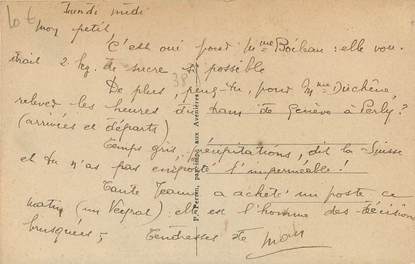 Lundi midi
mon petit
C'est oui pour Mme Boileau : elle vou-
drait 2 kg. de sucre si possible
De plus, peux-tu, pour Mme Duchêne,
relever les heures du tram de Genève à Perly ?
(arrivées et départs)
Temps gris, précipitations, dit la Suisse
et tu n'as pas emporté l'imperméable !
Tante Jeanne a acheté un poste ce
matin (un ) elle est l'homme des décisions
brusquées ;
Tendresses de
38